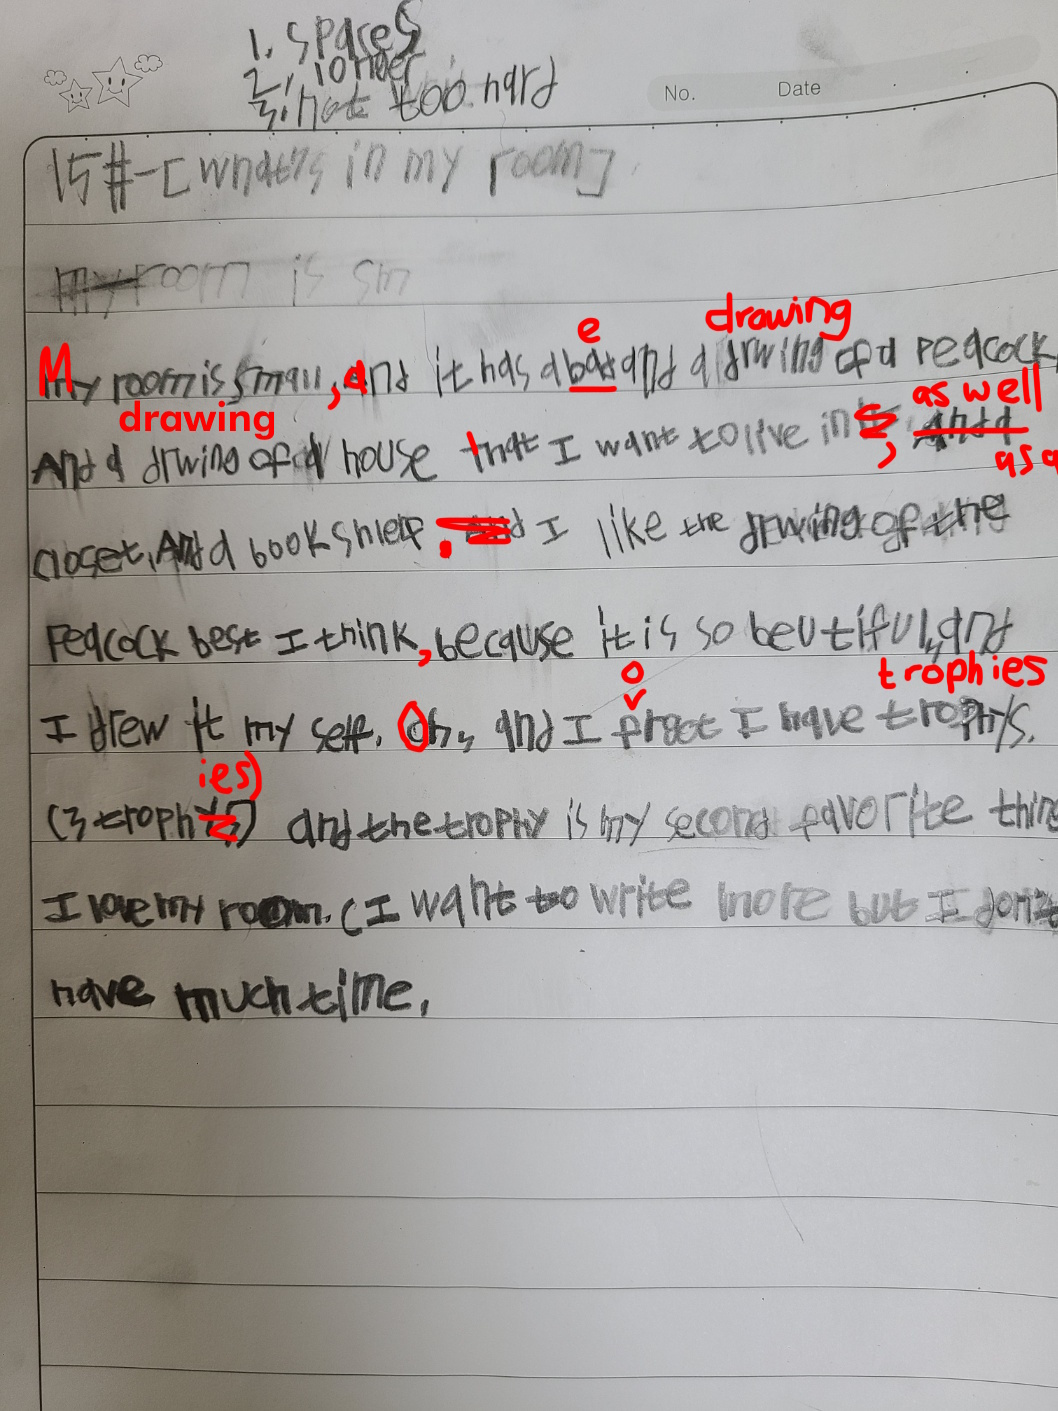 1. spaces
2. longer
3. not too hard
No. Date
15#-[what's in my room]
my room is sm
e drawing
My room is small, and it has a bad and a drwing of a Peacock,
drawing as well
And a drwing of a house that I want to live in, and a
as a
closet, And a bookshlef. and I like the drwing of the
Peacock best I think, because it is so beutiful, and
o trophies
I drew it my self. Oh, and I frget I have trophys.
ies)
(3 trophys) and the trophy is my second favorite thing
I love my room. (I want to write more but I don't
have much time,